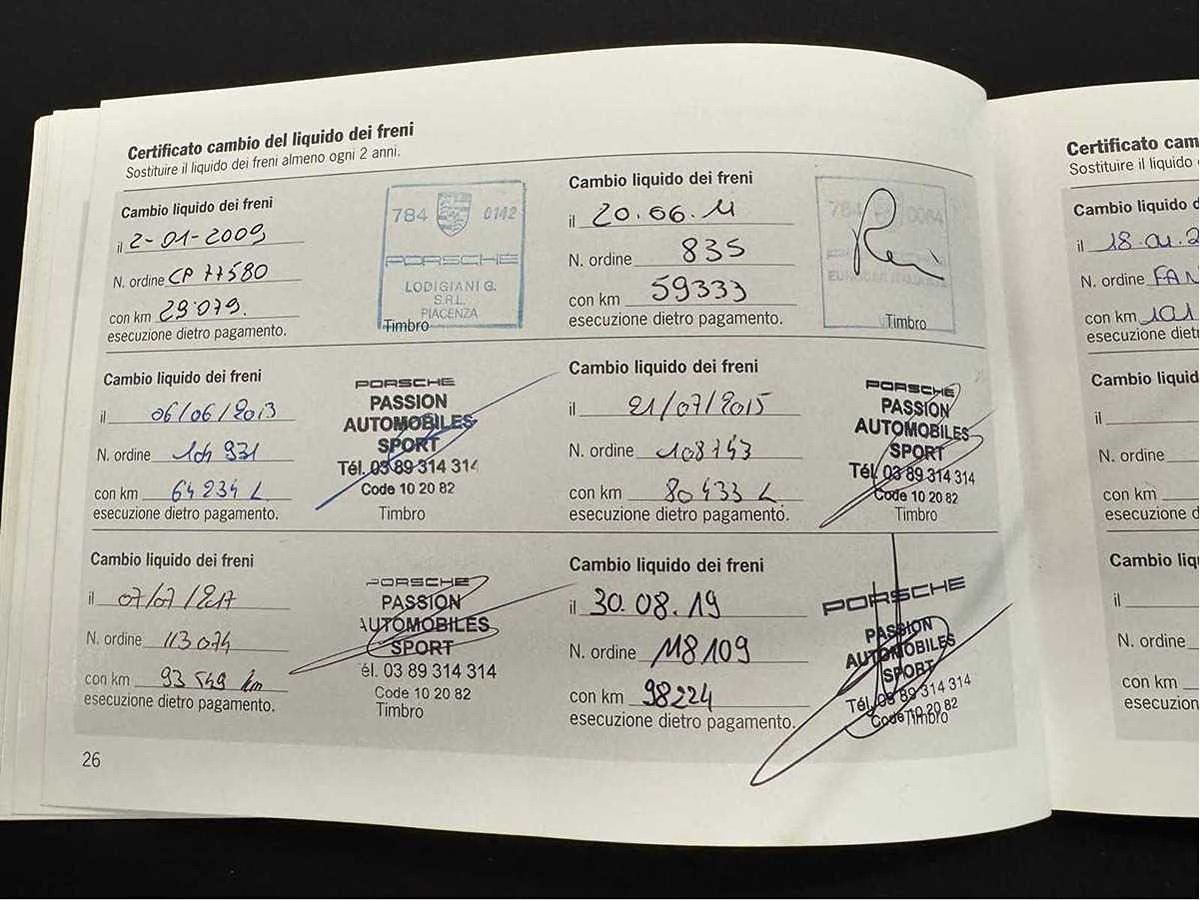 Certificato cambio del liquido dei freni
Sostituire il liquido dei freni almeno ogni 2 anni.
Cambio liquido dei freni
il 2-01-2009
N. ordine CP 77580
con km 29079.
esecuzione dietro pagamento.
784 0142
PORSCHE
LODIGIANI G.
S.R.L.
PIACENZA
Timbro
Cambio liquido dei freni
il 20.06.11
N. ordine 835
con km 59333
esecuzione dietro pagamento.
784 0064
Timbro
Cambio liquido dei freni
il 06/06/2013
N. ordine 104 931
con km 64 234 L
esecuzione dietro pagamento.
PORSCHE
PASSION
AUTOMOBILES
SPORT
Tél. 03 89 314 314
Code 10 20 82
Timbro
Cambio liquido dei freni
il 21/07/2015
N. ordine 108743
con km 80433 L
esecuzione dietro pagamento.
PORSCHE
PASSION
AUTOMOBILES
SPORT
Tél. 03 89 314 314
Code 10 20 82
Timbro
Cambio liquido dei freni
il 07/07/2017
N. ordine 113074
con km 93 549 km
esecuzione dietro pagamento.
PORSCHE
PASSION
AUTOMOBILES
SPORT
él. 03 89 314 314
Code 10 20 82
Timbro
Cambio liquido dei freni
il 30.08.19
N. ordine 118109
con km 98224
esecuzione dietro pagamento.
PORSCHE
PASSION
AUTOMOBILES
SPORT
Tél. 03 89 314 314
Code 10 20 82
Timbro
26
Certificato cam
Sostituire il liquido
Cambio liquido d
il 18.01.2
N. ordine FAN
con km 101
esecuzione diet
Cambio liquid
il
N. ordine
con km
esecuzione d
Cambio liqu
il
N. ordine
con km
esecuzion